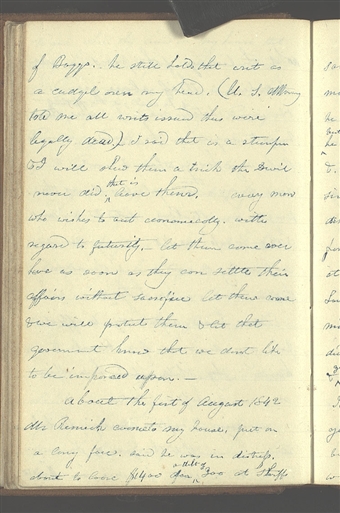 of Boggs. he still holds that writ as
a cudgel over my head. (U. S. Attorney
told me all writs issued thus were
legally dead.) I said that is a stumper
& I will shew them a trick the Devil
never did. that is leave them. every man
who wishes to act economically. with
regard to futurity. let them come over
here as soon as they can settle their
affairs without sacrifice let them come
& we will protect them & let that
government know that we dont like
to be "imposed upon.—
about the first of August 1842
Mr Remick came to my house, put on
a long face. said he was in distress.
about to loose $1400 for a debt of 300 at Sheriffs